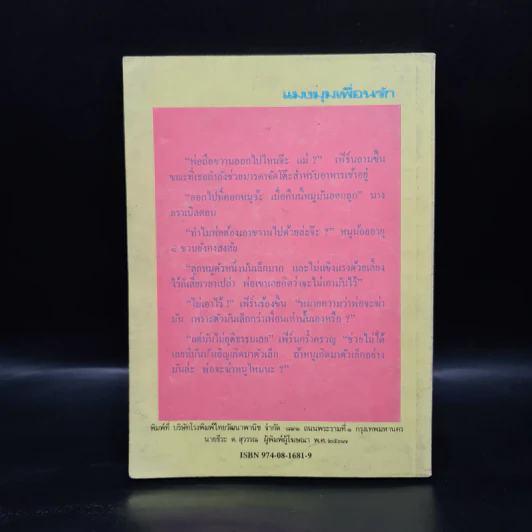 แมงมุมเพื่อนรัก
“พ่อถือขวานออกไปไหนจ๊ะ แม่ ?” เฟิร์นถามขึ้น
ขณะที่เธอกำลังช่วยมารดาจัดโต๊ะสำหรับอาหารเช้าอยู่
“ออกไปที่คอกหมูจ้ะ เมื่อคืนนี้หมูมันออกลูก” นาง
อราเบิลตอบ
“ทำไมพ่อต้องเอาขวานไปด้วยล่ะจ๊ะ ?” หนูน้อยอายุ
๘ ขวบยังคงสงสัย
“ลูกหมูตัวหนึ่งมันเล็กมาก และไม่แข็งแรงด้วยเลี้ยง
ไว้ก็เสียเวลาเปล่า พ่อเขาเลยคิดว่าจะไม่เอามันไว้”
“ไม่เอาไว้ !” เฟิร์นร้องขึ้น “หมายความว่าพ่อจะฆ่า
มัน เพราะตัวมันเล็กกว่าเพื่อนเท่านั้นเองหรือ ?”
“แต่มันไม่ยุติธรรมเลย” เฟิร์นคร่ำครวญ “ช่วยไม่ได้
เลยที่มันบังเอิญเกิดมาตัวเล็ก ถ้าหนูเกิดมาตัวเล็กอย่าง
มันล่ะ พ่อจะฆ่าหนูไหมนะ ?”
พิมพ์ที่ บริษัทโรงพิมพ์ไทยวัฒนาพานิช จำกัด ๘๙๑ ถนนพระรามที่ ๑ กรุงเทพมหานคร
นายธีระ ต. สุวรรณ ผู้พิมพ์ผู้โฆษณา พ.ศ. ๒๕๓๗
ISBN 974-08-1681-9